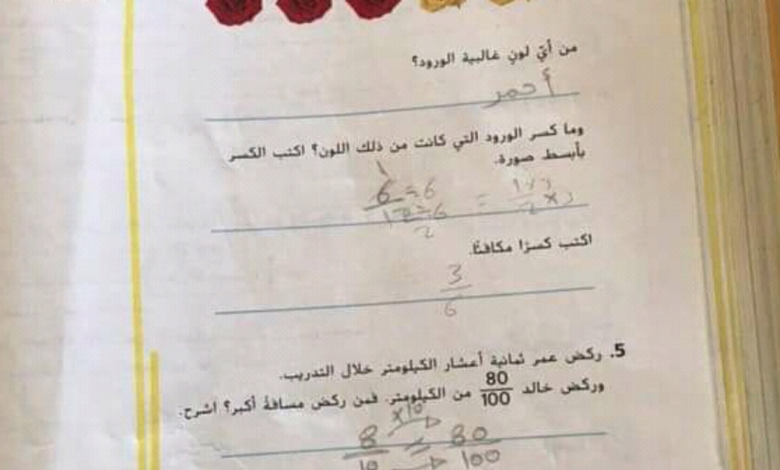 من أيّ لونٍ غالبية الورود؟
أحمر
وما كسر الورود التي كانت من ذلك اللون؟ اكتب الكسر
بأبسط صورة.
1
6÷6/12÷6 = 1×3/2×3
2
اكتب كسرًا مكافئًا.
3/6
5. ركض عمر ثمانية أعشار الكيلومتر خلال التدريب.
وركض خالد 80/100 من الكيلومتر. فمن ركض مسافة أكبر؟ اشرح.
×10
8/10 = 80/100